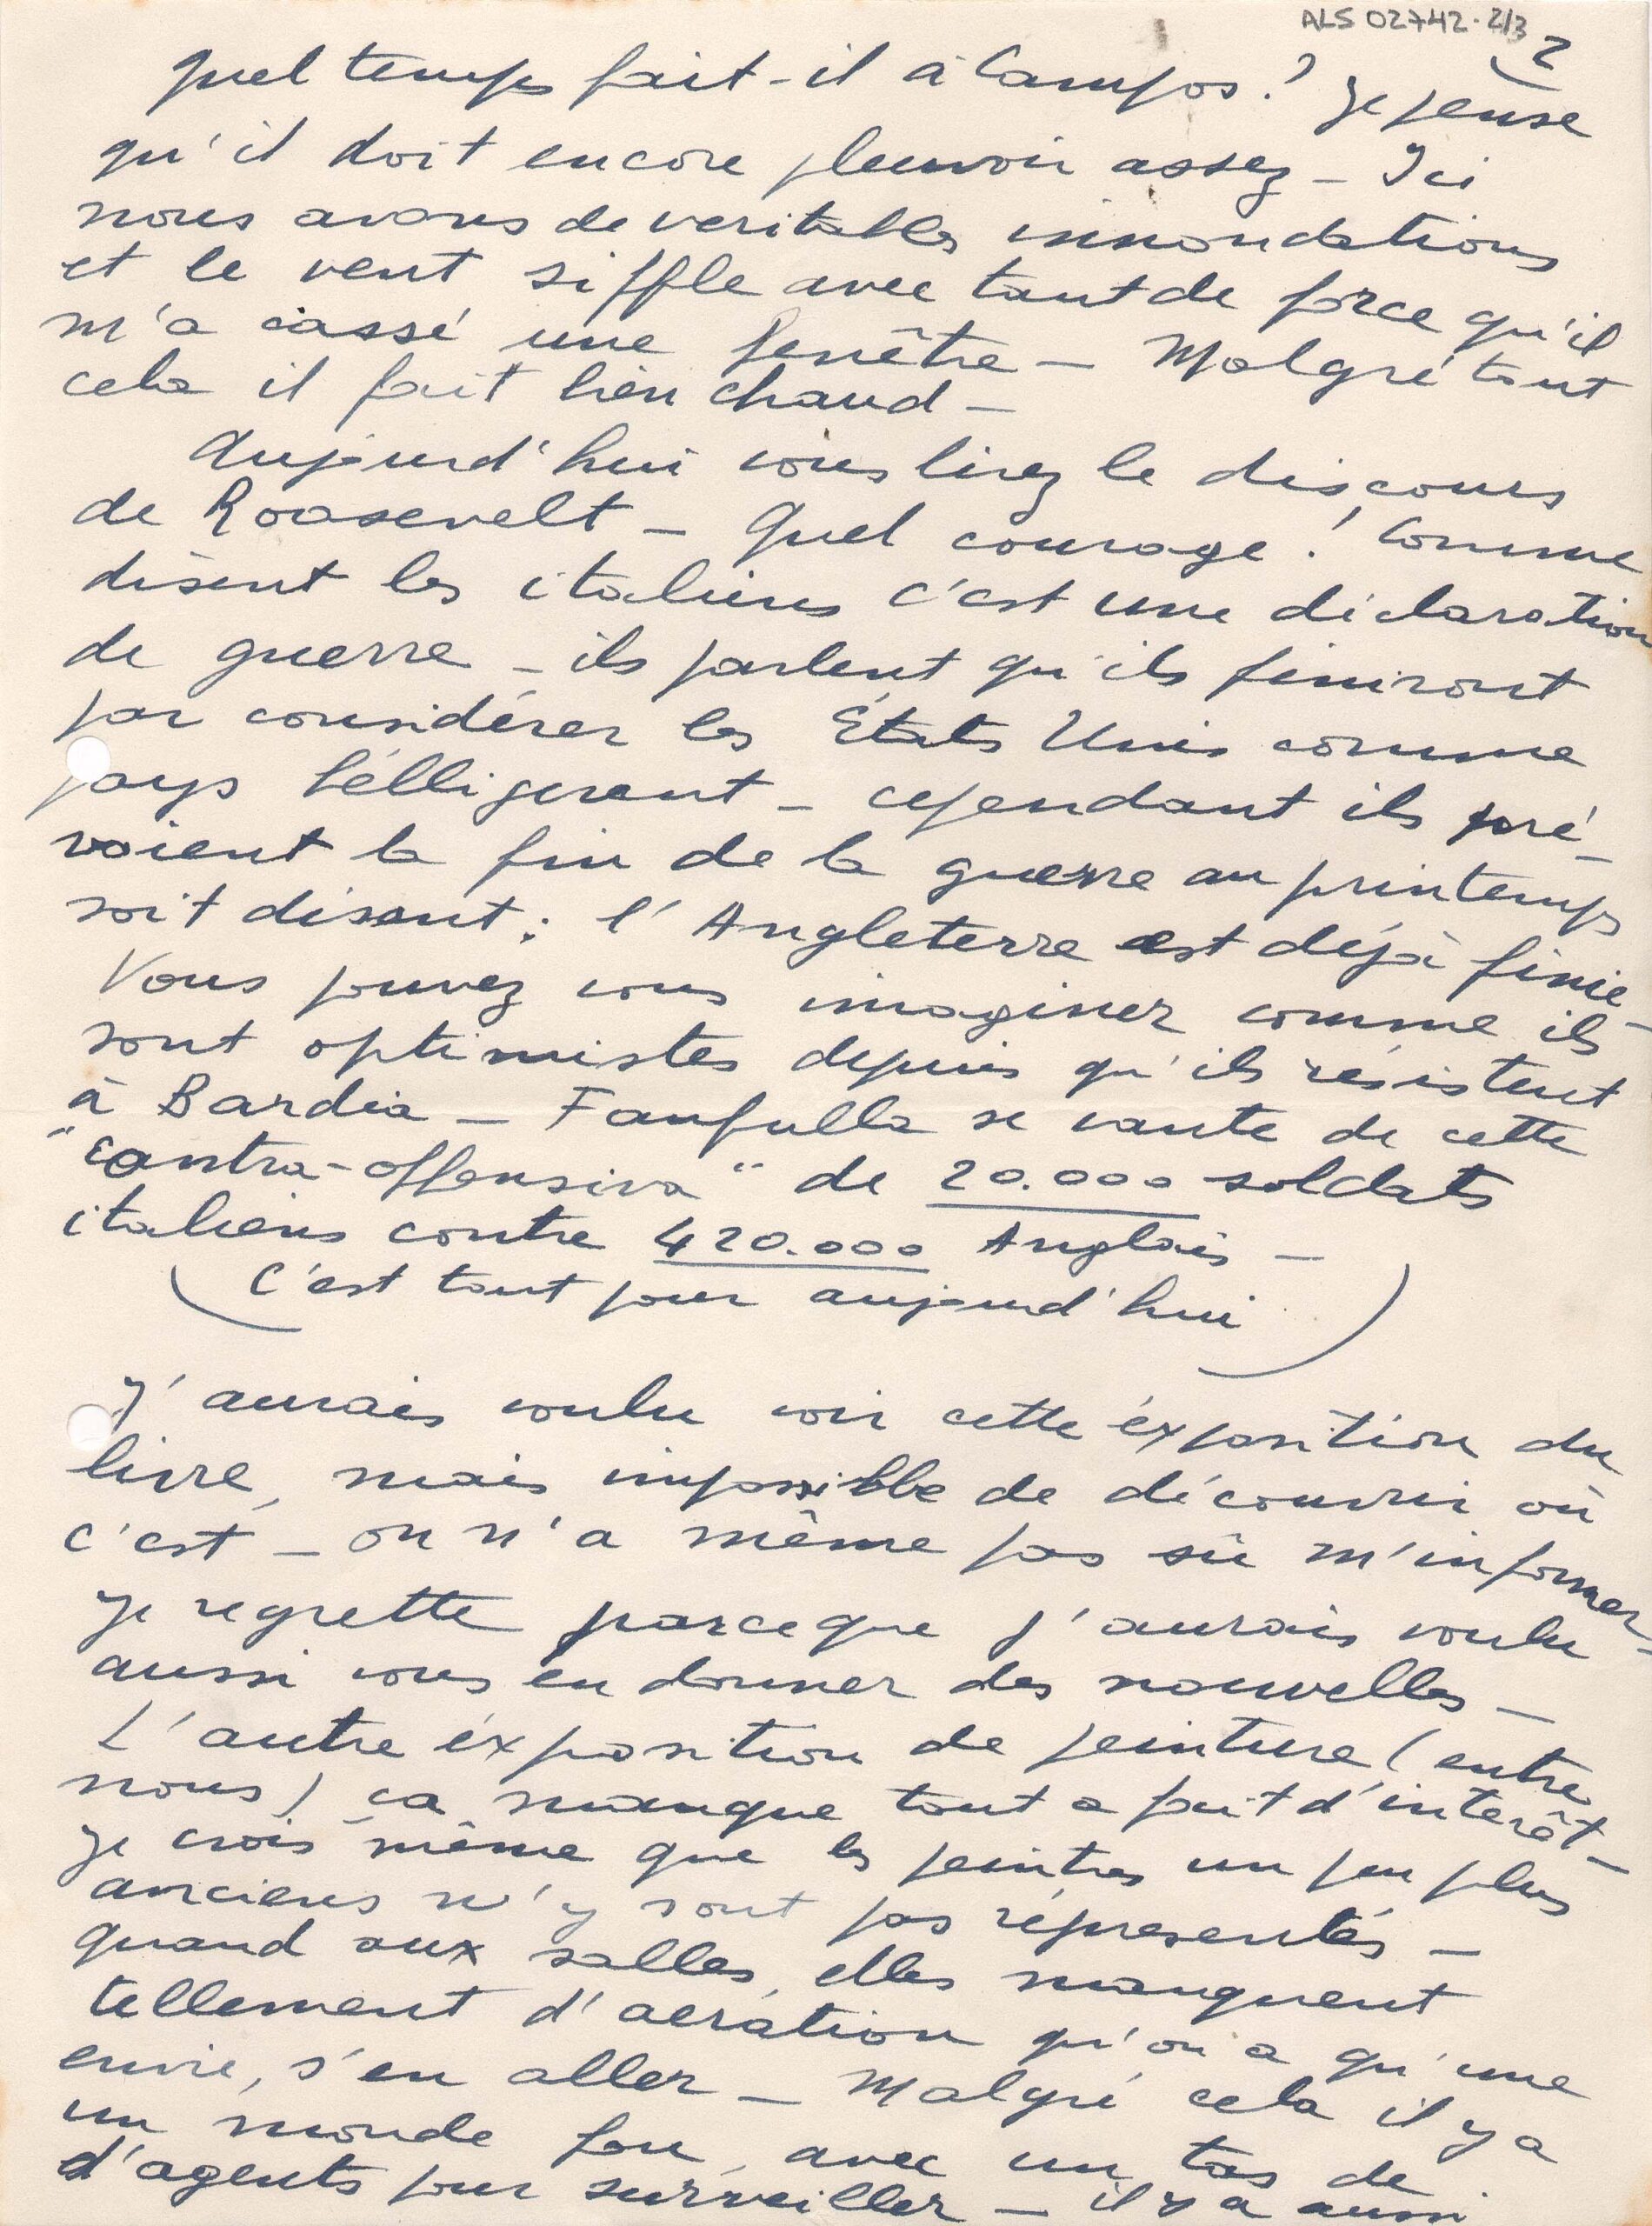 ALS 02742·2/3
2
Quel temps fait-il à Campos? Je pense
qu'il doit encore pleuvoir assez – Ici
nous avons de veritables innondations
et le vent siffle avec tant de force qu'il
m'a cassé une fenêtre – Malgré tout
cela il fait bien chaud –
Aujourd'hui vous lirez le discours
de Roosevelt – Quel courage! Comme
disent les italiens c'est une déclaration
de guerre – ils parlent qu'ils finiront
par considérer les États Unis comme
pays bélligerent – cependant ils pré-
voient la fin de la guerre au printemps
soit disant: l'Angleterre est déjà finie –
Vous pouvez vous imaginer comme ils
sont optimistes depuis qu'ils résistent
à Bardia – Fanfulla se vante de cette
"contra-offensiva" de 20.000 soldats
italiens contre 420.000 Anglais –
(C'est tout pour aujourd'hui)
J'aurais voulu voir cette éxposition du
livre, mais impossible de découvrir où
c'est – on n'a même pas sû m'informer –
Je regrette parceque j'aurais voulu
aussi vous en donner des nouvelles –
L'autre éxposition de peinture (entre
nous) ça manque tout a fait d'interêt –
Je crois même que les peintres un peu plus
anciens n'y sont pas répresentés –
Quand aux salles, elles manquent
tellement d'aération qu'on a qu'une
envie, s'en aller – Malgré cela il y a
un monde fou, avec un tas de
d'agents pour surveiller – il y a aussi